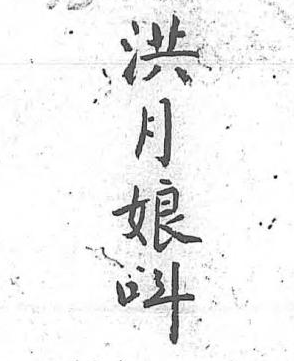 洪月娘呌